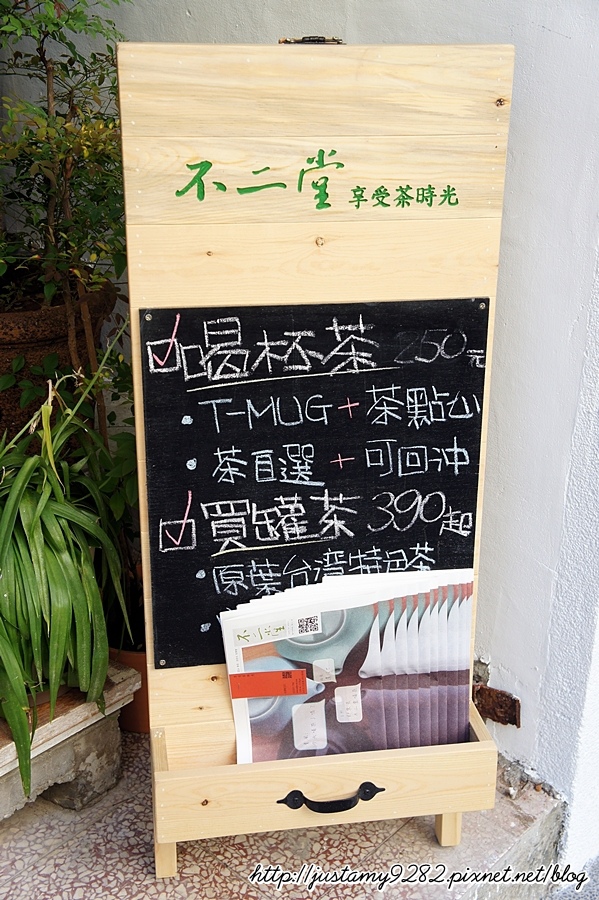 不二堂 享受茶時光
喝杯茶 250元
• T-MUG + 茶點心
• 茶自選 + 可回沖
買罐茶 390起
• 原葉台湾特色茶
不二堂
http://justamy9282.pixnet.net/blog